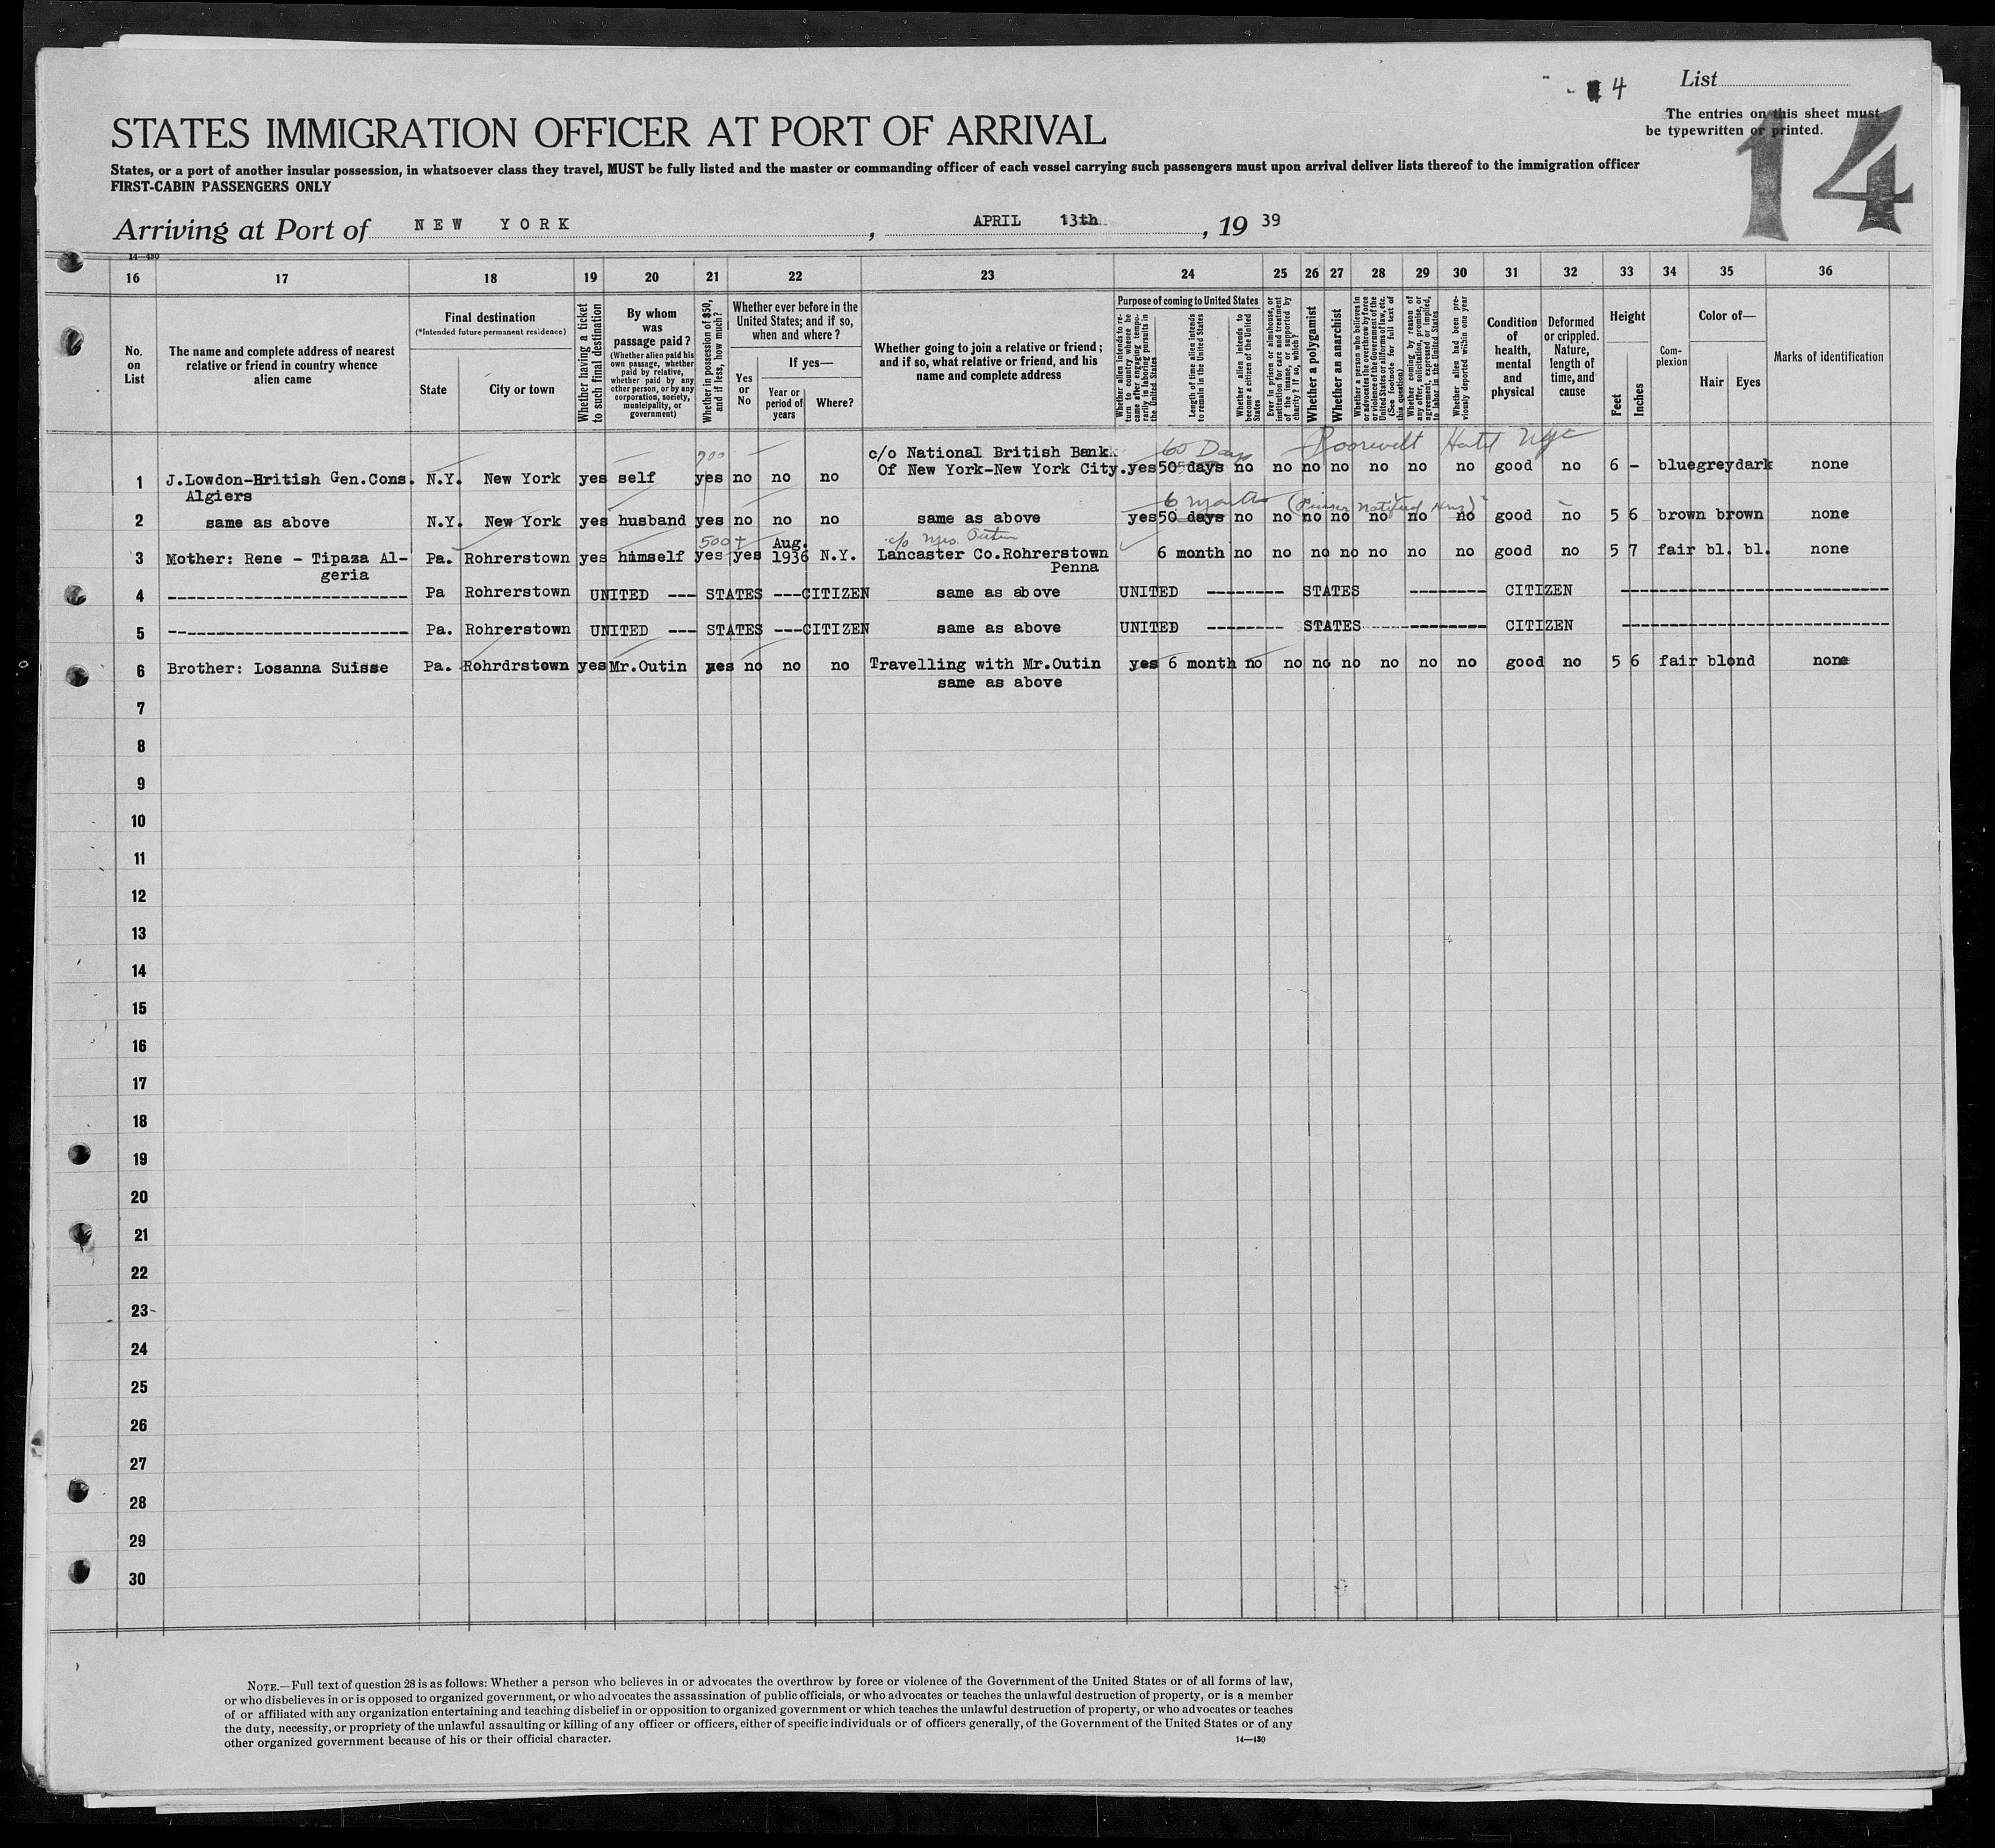 4
List
The entries on this sheet must
be typewritten or printed.
14
STATES IMMIGRATION OFFICER AT PORT OF ARRIVAL
States, or a port of another insular possession, in whatsoever class they travel, MUST be fully listed and the master or commanding officer of each vessel carrying such passengers must upon arrival deliver lists thereof to the immigration officer
FIRST-CABIN PASSENGERS ONLY
Arriving at Port of NEW YORK, APRIL 13th, 19 39
14—430
16 17 18 19 20 21 22 23 24 25 26 27 28 29 30 31 32 33 34 35 36
No. on List
The name and complete address of nearest relative or friend in country whence alien came
Final destination
(*Intended future permanent residence)
State
City or town
Whether having a ticket to such final destination
By whom was passage paid?
(Whether alien paid his own passage, whether paid by relative, whether paid by any other person, or by any corporation, society, municipality, or government)
Whether in possession of $50, and if less, how much?
Whether ever before in the United States; and if so, when and where?
Yes or No
If yes—
Year or period of years
Where?
Whether going to join a relative or friend; and if so, what relative or friend, and his name and complete address
Purpose of coming to United States
Whether alien intends to return to country whence he came after engaging temporarily in laboring pursuits in the United States
Length of time alien intends to remain in the United States
Whether alien intends to become a citizen of the United States
Ever in prison or almshouse, or institution for care and treatment of the insane, or supported by charity? If so, which?
Whether a polygamist
Whether an anarchist
Whether a person who believes in or advocates the overthrow by force or violence of the Government of the United States or all forms of law, etc. (See footnote for full text of this question)
Whether coming by reason of any offer, solicitation, promise, or agreement, expressed or implied, to labor in the United States
Whether alien had been previously deported within one year
Condition of health, mental and physical
Deformed or crippled. Nature, length of time, and cause
Height
Feet
Inches
Com-plexion
Color of—
Hair
Eyes
Marks of identification
60 Days Roosevelt Hotel NYC
c/o National British Bank
1 J.Lowdon-British Gen.Cons. N.Y. New York yes self yes no no no Of New York-New York City. yes 50 days no no no no no no no good no 6 - blue grey dark none
Algiers
6 months
2 same as above N.Y. New York yes husband yes no no no same as above yes 50 days no no no no no no no good no 5 6 brown brown none
500+ Aug. c/o Mrs. Outin
3 Mother: Rene - Tipaza Al- Pa. Rohrerstown yes himself yes yes 1936 N.Y. Lancaster Co.Rohrerstown 6 month no no no no no no no good no 5 7 fair bl. bl. none
geria Penna
4 ------------------------- Pa Rohrerstown UNITED --- STATES ---CITIZEN same as above UNITED -------- STATES -------- CITIZEN ----------------------------
5 ------------------------- Pa. Rohrerstown UNITED --- STATES ---CITIZEN same as above UNITED -------- STATES -------- CITIZEN ----------------------------
6 Brother: Losanna Suisse Pa. Rohrdrstown yes Mr.Outin yes no no no Travelling with Mr.Outin yes 6 month no no no no no no no good no 5 6 fair blond none
same as above
7
8
9
10
11
12
13
14
15
16
17
18
19
20
21
22
23
24
25
26
27
28
29
30
NOTE.—Full text of question 28 is as follows: Whether a person who believes in or advocates the overthrow by force or violence of the Government of the United States or of all forms of law,
or who disbelieves in or is opposed to organized government, or who advocates the assassination of public officials, or who advocates or teaches the unlawful destruction of property, or is a member
of or affiliated with any organization entertaining and teaching disbelief in or opposition to organized government or which teaches the unlawful destruction of property, or who advocates or teaches
the duty, necessity, or propriety of the unlawful assaulting or killing of any officer or officers, either of specific individuals or of officers generally, of the Government of the United States or of any
other organized government because of his or their official character.
14—430